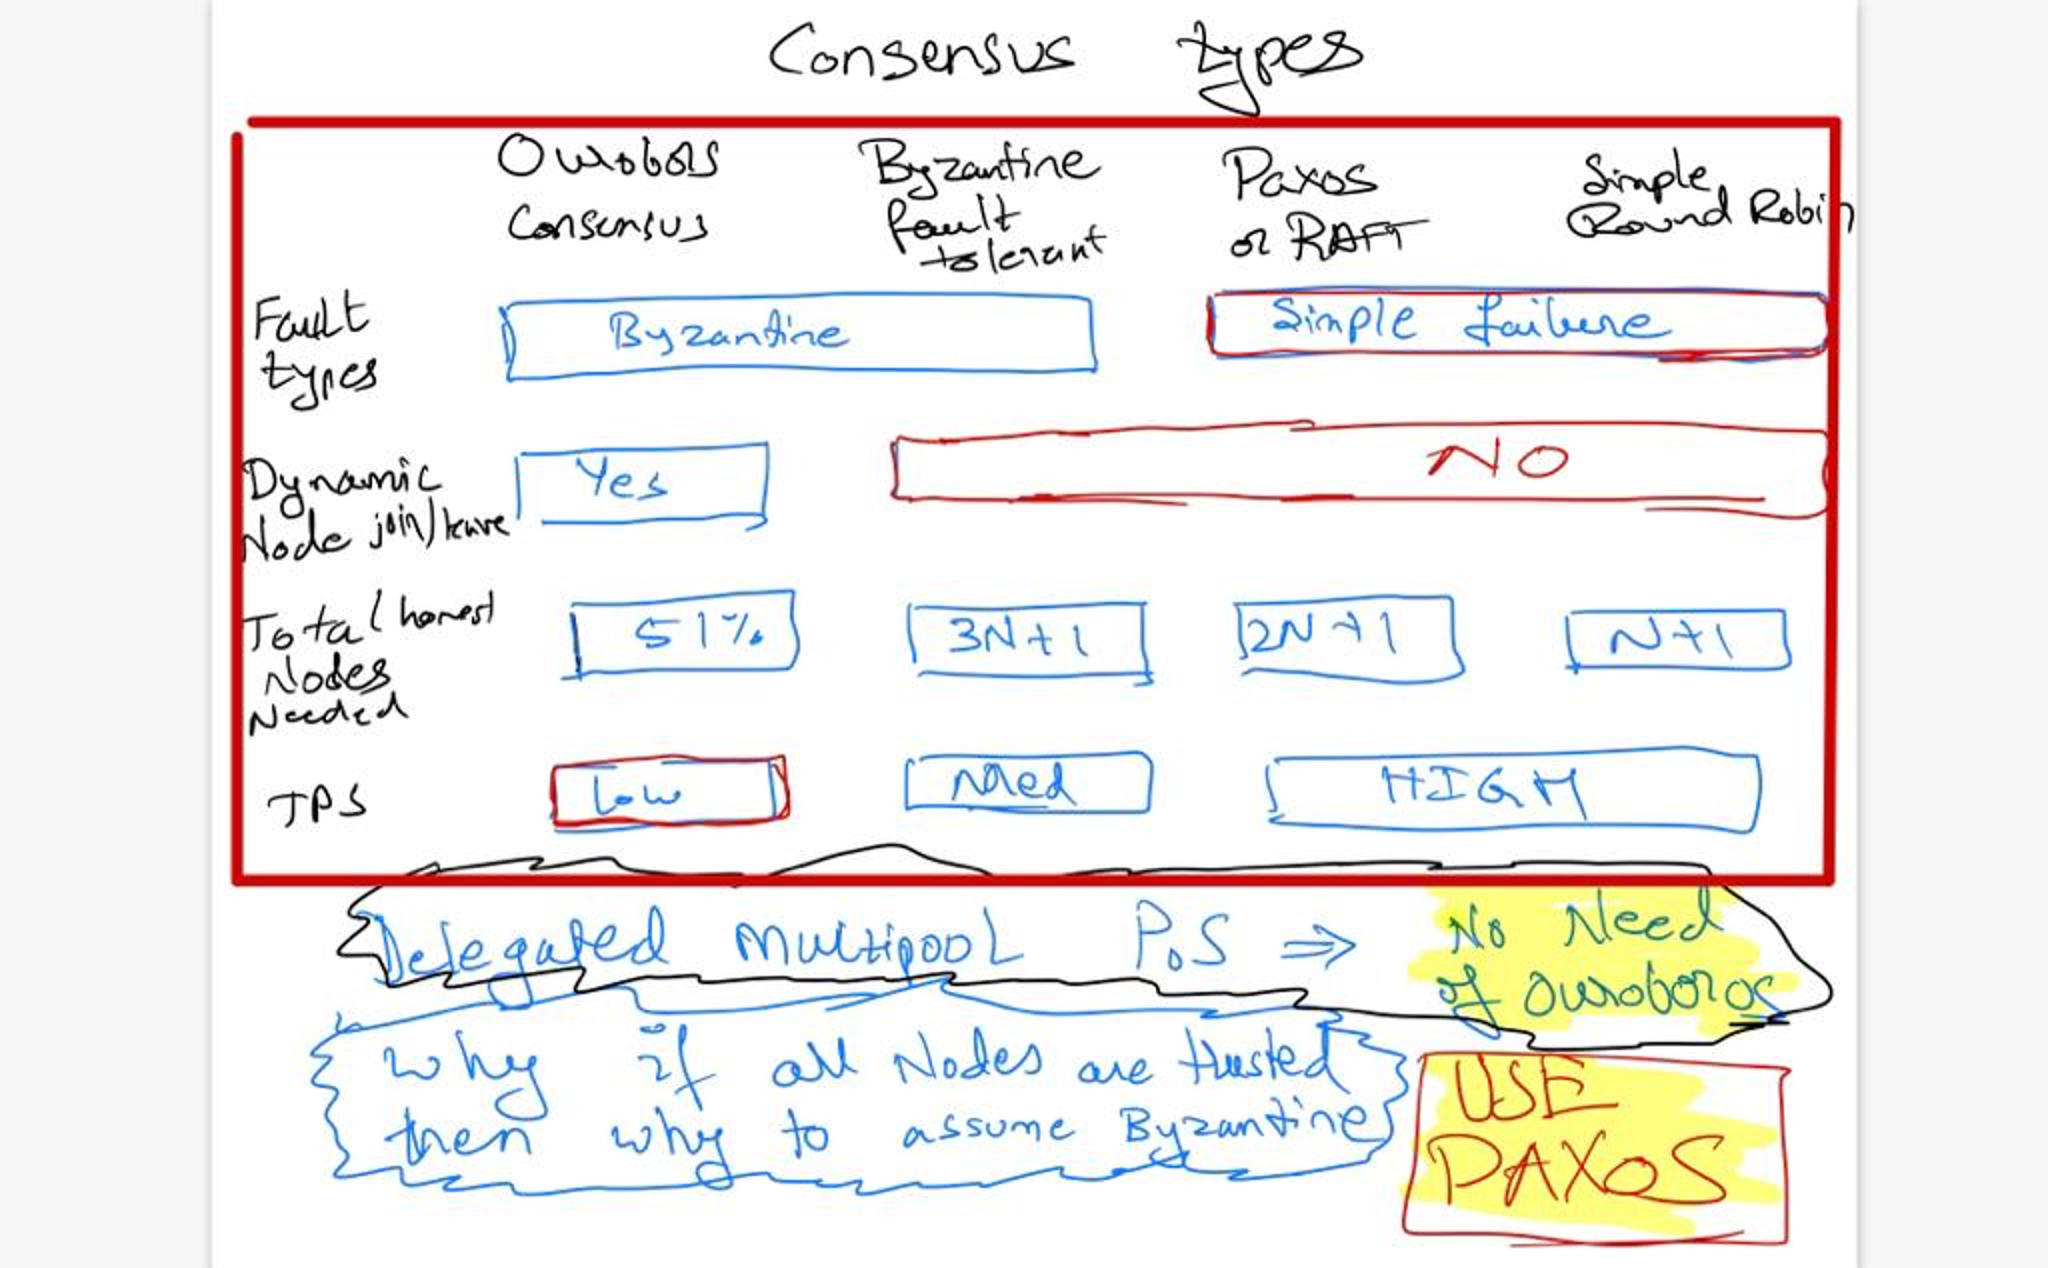 Consensus types
Ouroboros
Consensus
Byzantine
fault
tolerant
Paxos
or RAFT
Simple
Round Robin
Fault
types
Byzantine
Simple failure
Dynamic
Node join/leave
Yes
NO
Total honest
Nodes
Needed
51%
3N+1
2N+1
N+1
TPS
Low
Med
HIGH
Delegated Multipool PoS ⇒
No Need
of Ouroboros
why if all Nodes are trusted
then why to assume Byzantine
USE
PAXOS